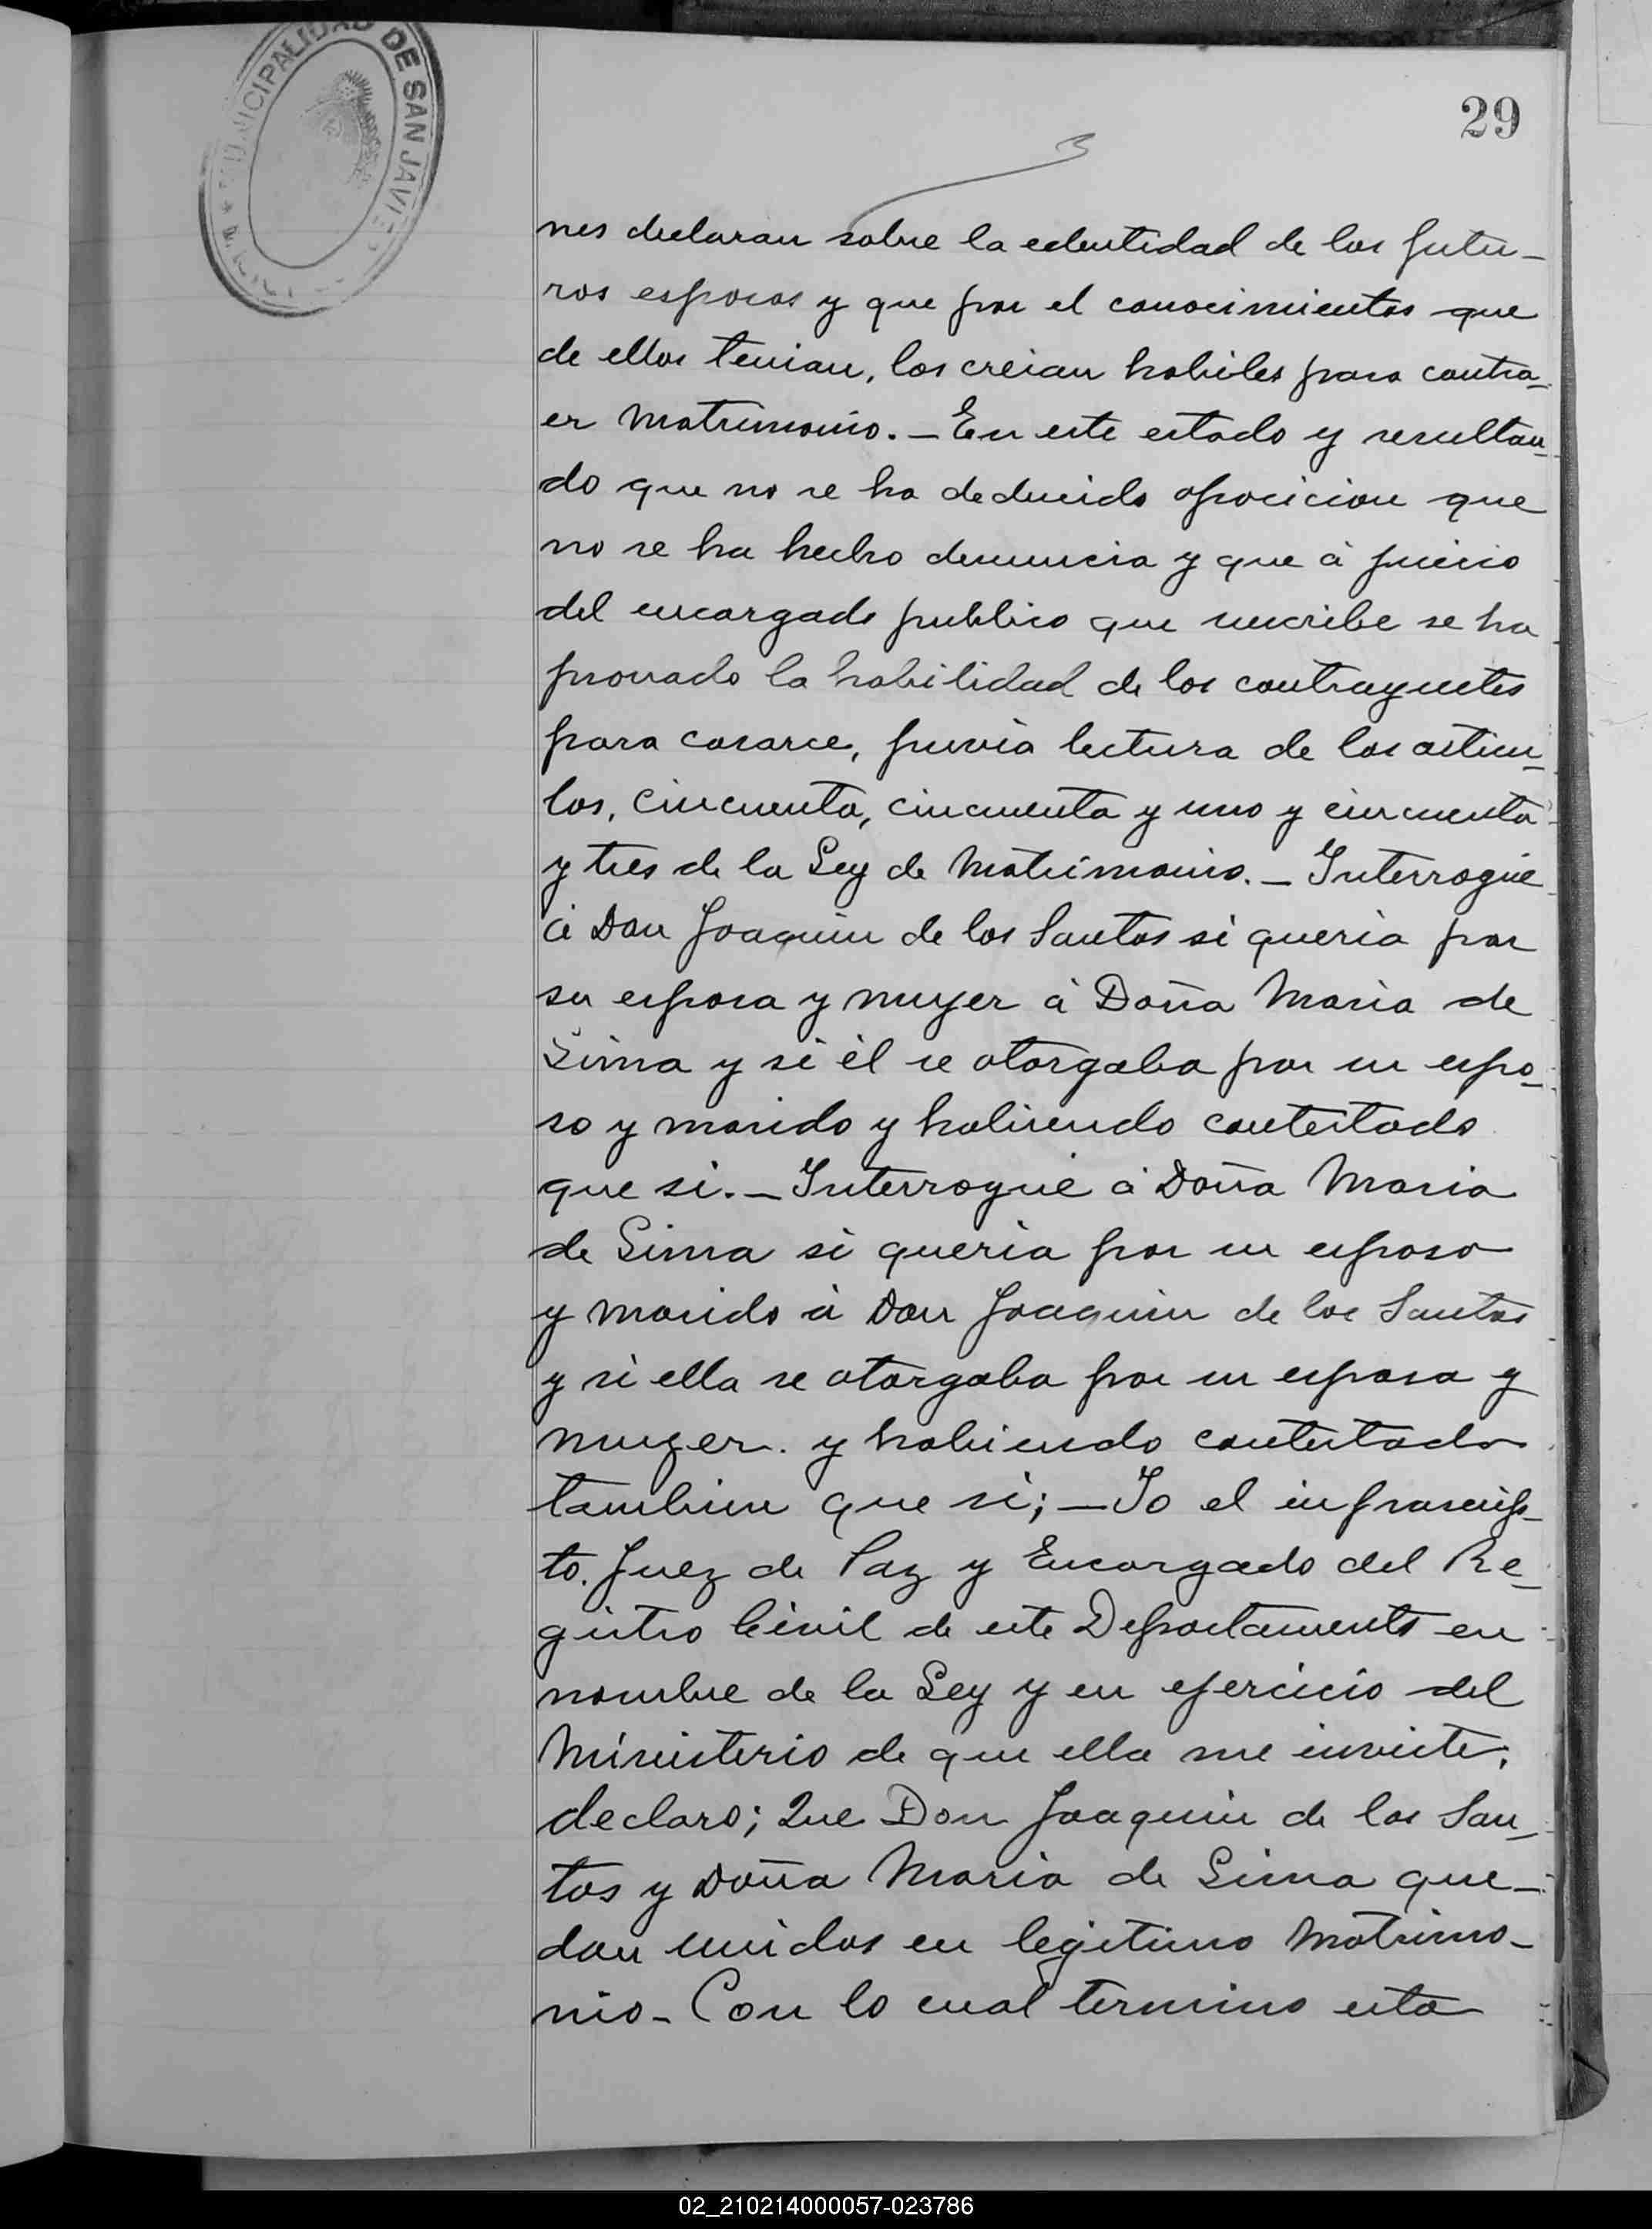 MUNICIPALIDAD DE SAN JAVIER
29
nes declaran sobre la edentidad de los futu-
ros esposos y que por el conocimientos que
de ellos tenian, los creian habiles para contra-
er Matrimonio. - En este estado y resultan-
do que no se ha deducido oposicion que
no se ha hecho denuncia y que á juicio
del encargado publico que suscribe se ha
provado la habilidad de los contrayentes
para casarce, previa lectura de los articu-
los, cincuenta, cincuenta y uno y cincuenta
y tres de la Ley de Matrimonio. - Interrogué
á Don Joaquin de los Santos si queria por
su esposa y muyer á Doña Maria de
Lima y si él se otorgaba por su espo-
so y marido y habiendo contestado
que si. - Interrogué á Doña Maria
de Lima si queria por su esposo
y marido á Don Joaquin de los Santos
y si ella se otorgaba por su esposa y
muger. y habiendo contestado
tambien que si; - Yo el infrascrip-
to. Juez de Paz y Encargado del Re-
gistro Civil de este Departamento en
nombre de la Ley y en ejercicio del
Ministerio de que ella me inviste,
declaro; Que Don Joaquin de los San-
tos y Doña Maria de Lima que-
dan unidos en legitimo Matrimo-
nio - Con lo cual termino esta
02_210214000057-023786